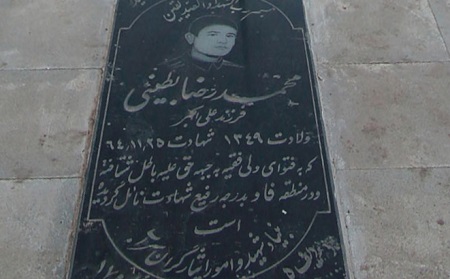 محمد رضا بطینی
فرزند علی اکبر
ولادت ۱۳۴۹ شهادت ۶۴,۱۱,۲۵
که به فتوای ولی فقیه به جبهه حق علیه باطل شتافته
و در منطقه فاو بدرجه رفیع شهادت نائل گردیده
است
بنیاد شهید و امور ایثارگران